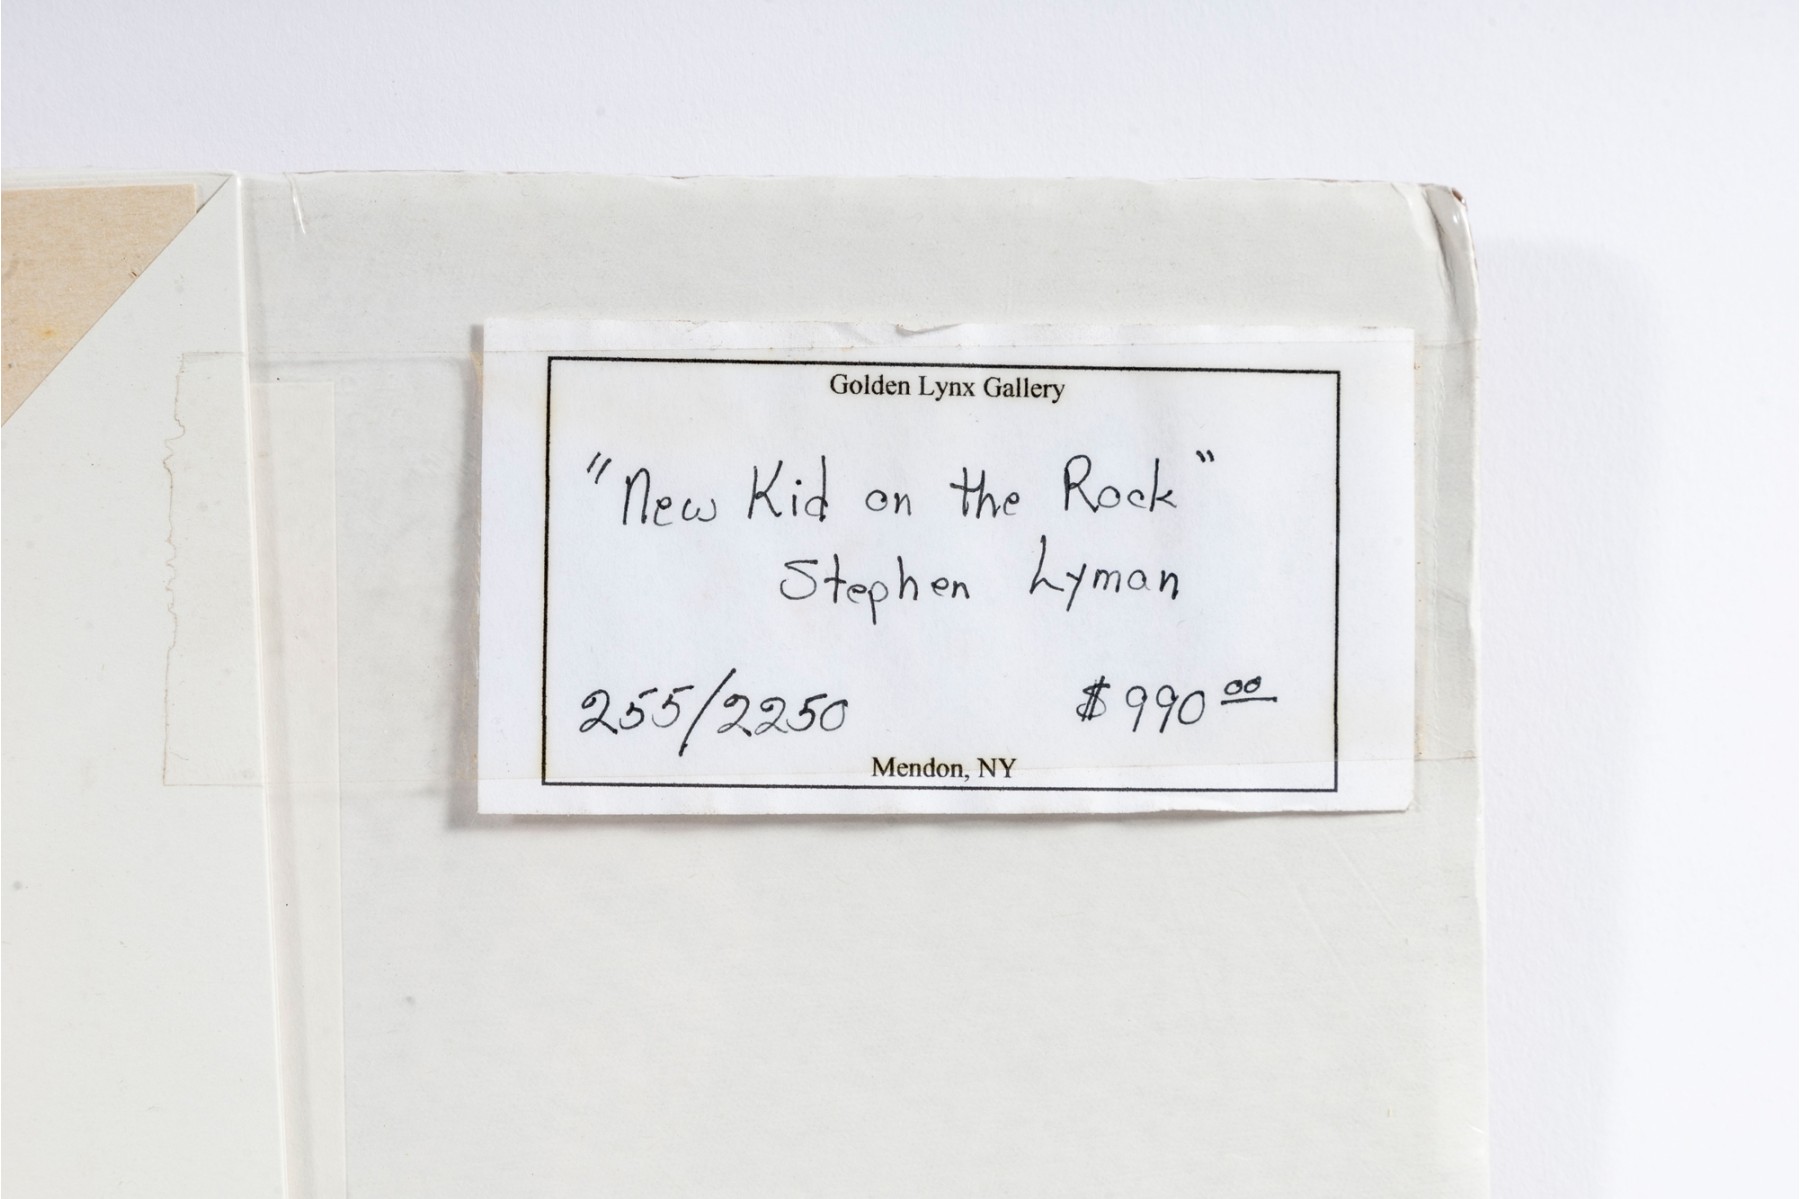 Golden Lynx Gallery
"New Kid on the Rock"
Stephen Lyman
255/2250 $990.00
Mendon, NY